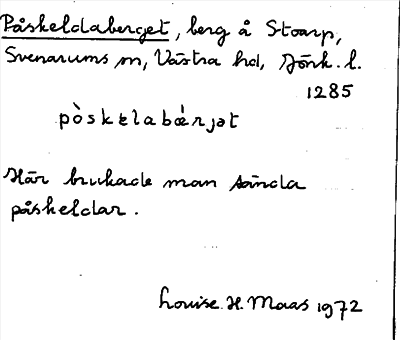 Påskeldaberget, berg å Stoarp,
Svenarums sn, Västra hd, Jönk. l.
1285
pòskɛlabǽrjət
Här brukade man tända
påskeldar.
Louise H. Maas 1972